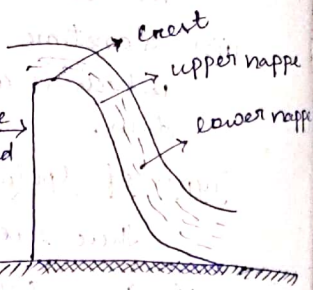 crest
upper nappe
lower nappe
e
d